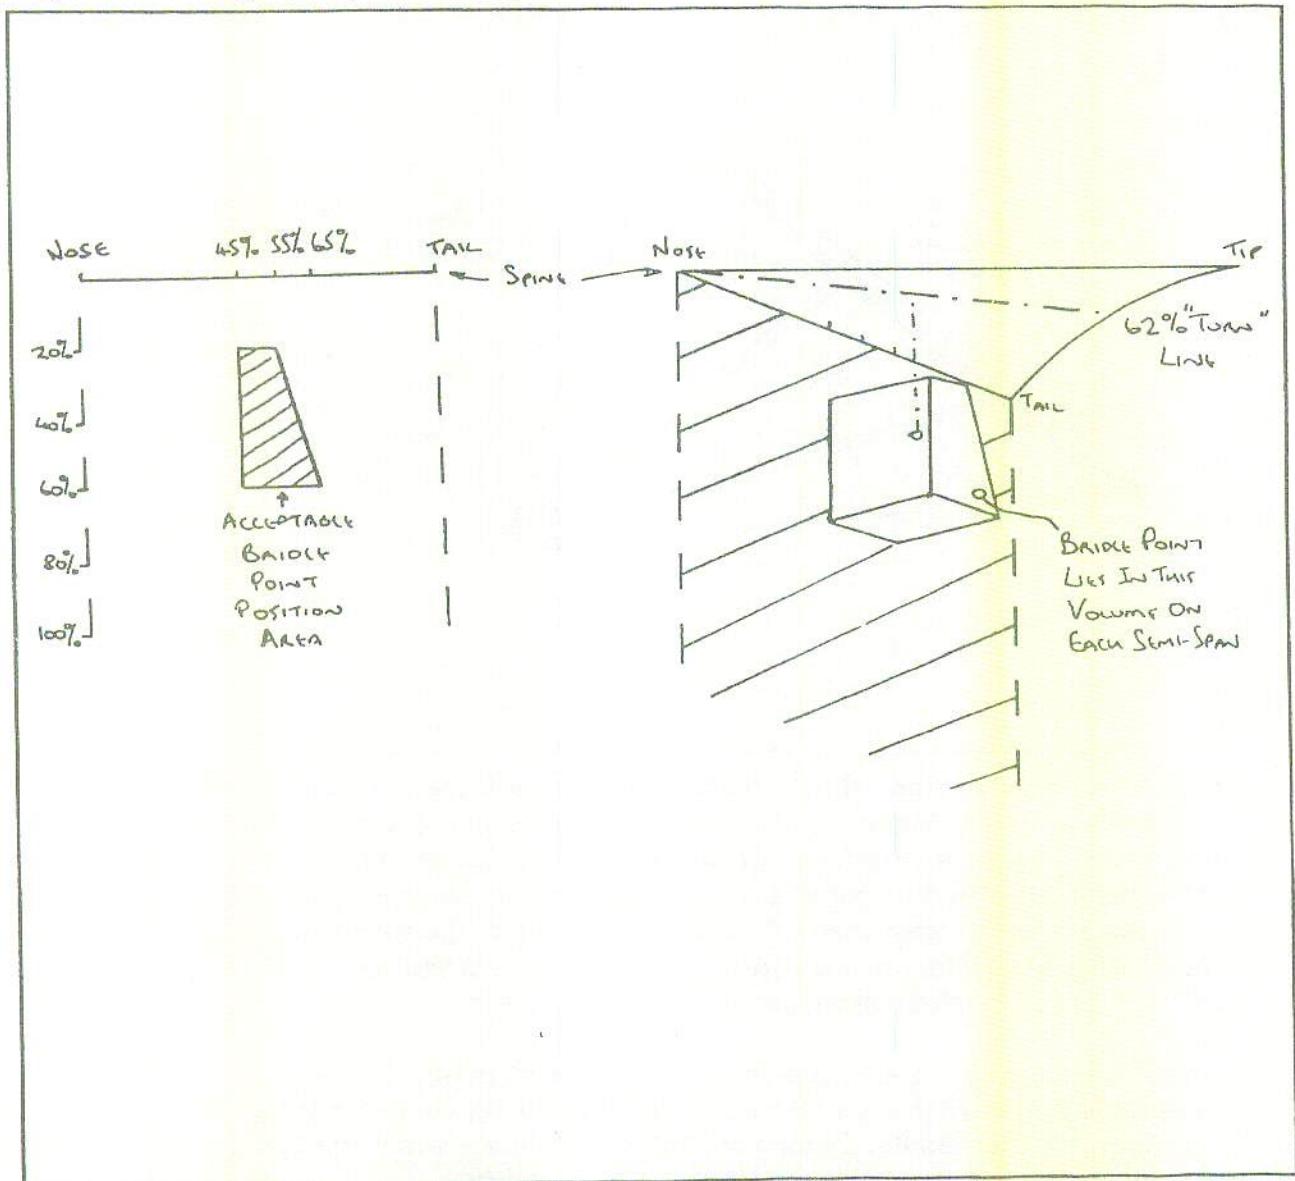 NOSE 45% 55% 65% TAIL
SPINE
20%
40%
60%
80%
100%
ACCEPTABLE
BRIDLE
POINT
POSITION
AREA
NOSE
TIP
62% "TURN"
LINE
TAIL
BRIDLE POINT
LIES IN THIS
VOLUME ON
EACH SEMI-SPAN